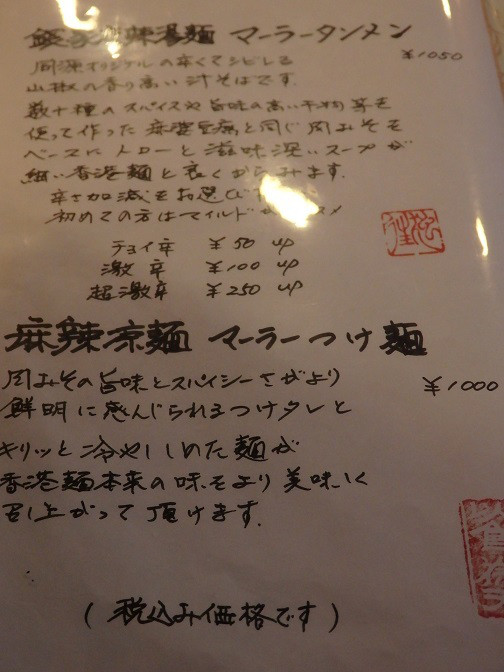 麻辣湯麺 マーラータンメン
¥1050
周源オリジナルの辛くてシビレる
山椒の香り高い汁そばです。
数十種のスパイスや旨味の高い干物等を
使って作った麻婆豆腐と同じ周みそを
ベースにトローと滋味深いスープが
細い香港麺と良くからみます。
辛さ加減をお選び
初めての方はマイルドが メ
チョイ辛 ¥50 up
激辛 ¥100 up
超激辛 ¥250 up
麻辣涼麺 マーラーつけ麺
¥1000
周みその旨味とスパイシーさがより
鮮明に感んじられるつけタレと
キリッと冷やししめた麺が
香港麺本来の味をより美味しく
召し上がって頂けます。
(税込み価格です)